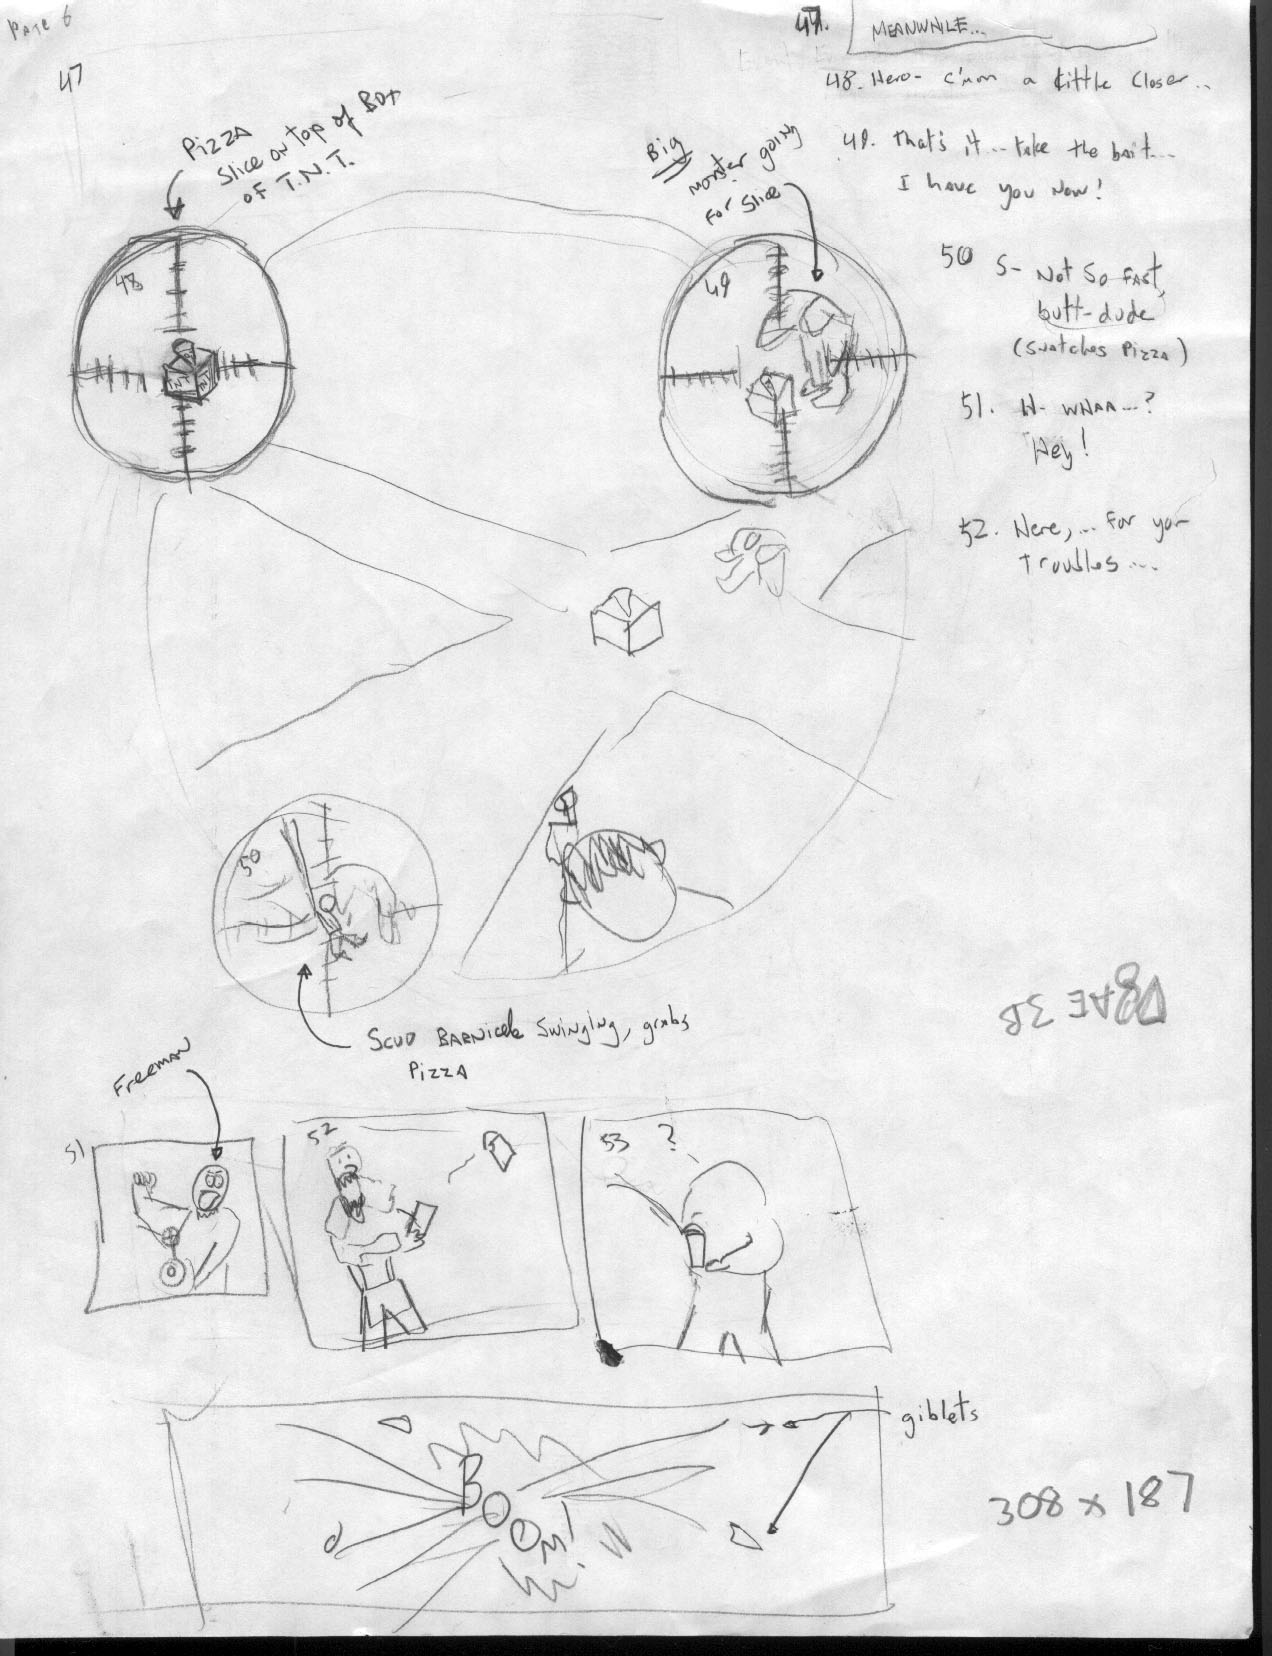 Page 6
47
47. MEANWHILE...
48. Hero- c'mon a little closer...
49. that's it... take the bait...
I have you now!
50 S- Not so fast,
butt-dude
(snatches Pizza)
51. H- WHAA...?
Hey!
52. Here,... for your
troubles...
Pizza
Slice on top of Box
of T.N.T.
Big
monster going
for slice
48
TNT
TNT
49
50
Scud Barnicle swinging, grabs
Pizza
Freeman
51
52
53
?
BOOM!
giblets
308 x 187